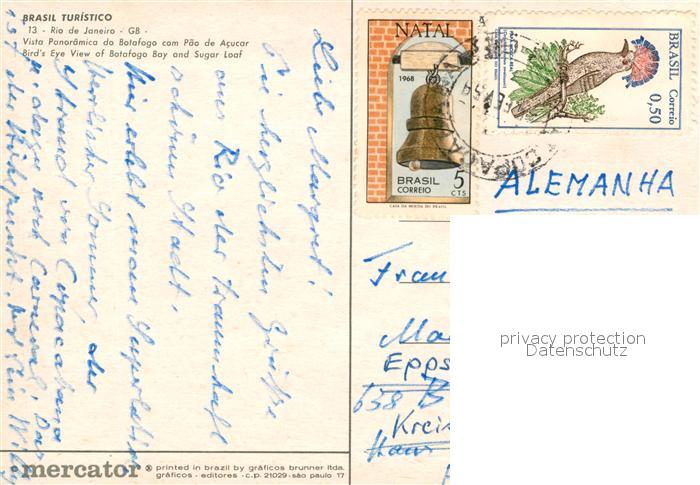 BRASIL TURÍSTICO
13 - Rio de Janeiro - GB -
Vista Panorâmica do Botafogo com Pão de Açucar
Bird's Eye View of Botafogo Bay and Sugar Loaf
Liebe Margret!
Die herzlichsten Grüße
aus Rio der traumhaft
schönen Stadt.
Hier erlebt man
herrlicher Sommer der
Strand von Copacabana
u. dazu noch Carneval. Das
ist der Höhepunkt.
mercator ® printed in brazil by gráficos brunner ltda.
gráficos - editores - c.p. 21029 - são paulo 17
NATAL
1968
BRASIL
CORREIO
5
CTS
CASA DA MOEDA DO BRASIL
BRASIL Correio
0,50
ALEMANHA
Frau
Ma
Epps
638 B
Kreis
Haus
privacy protection
Datenschutz